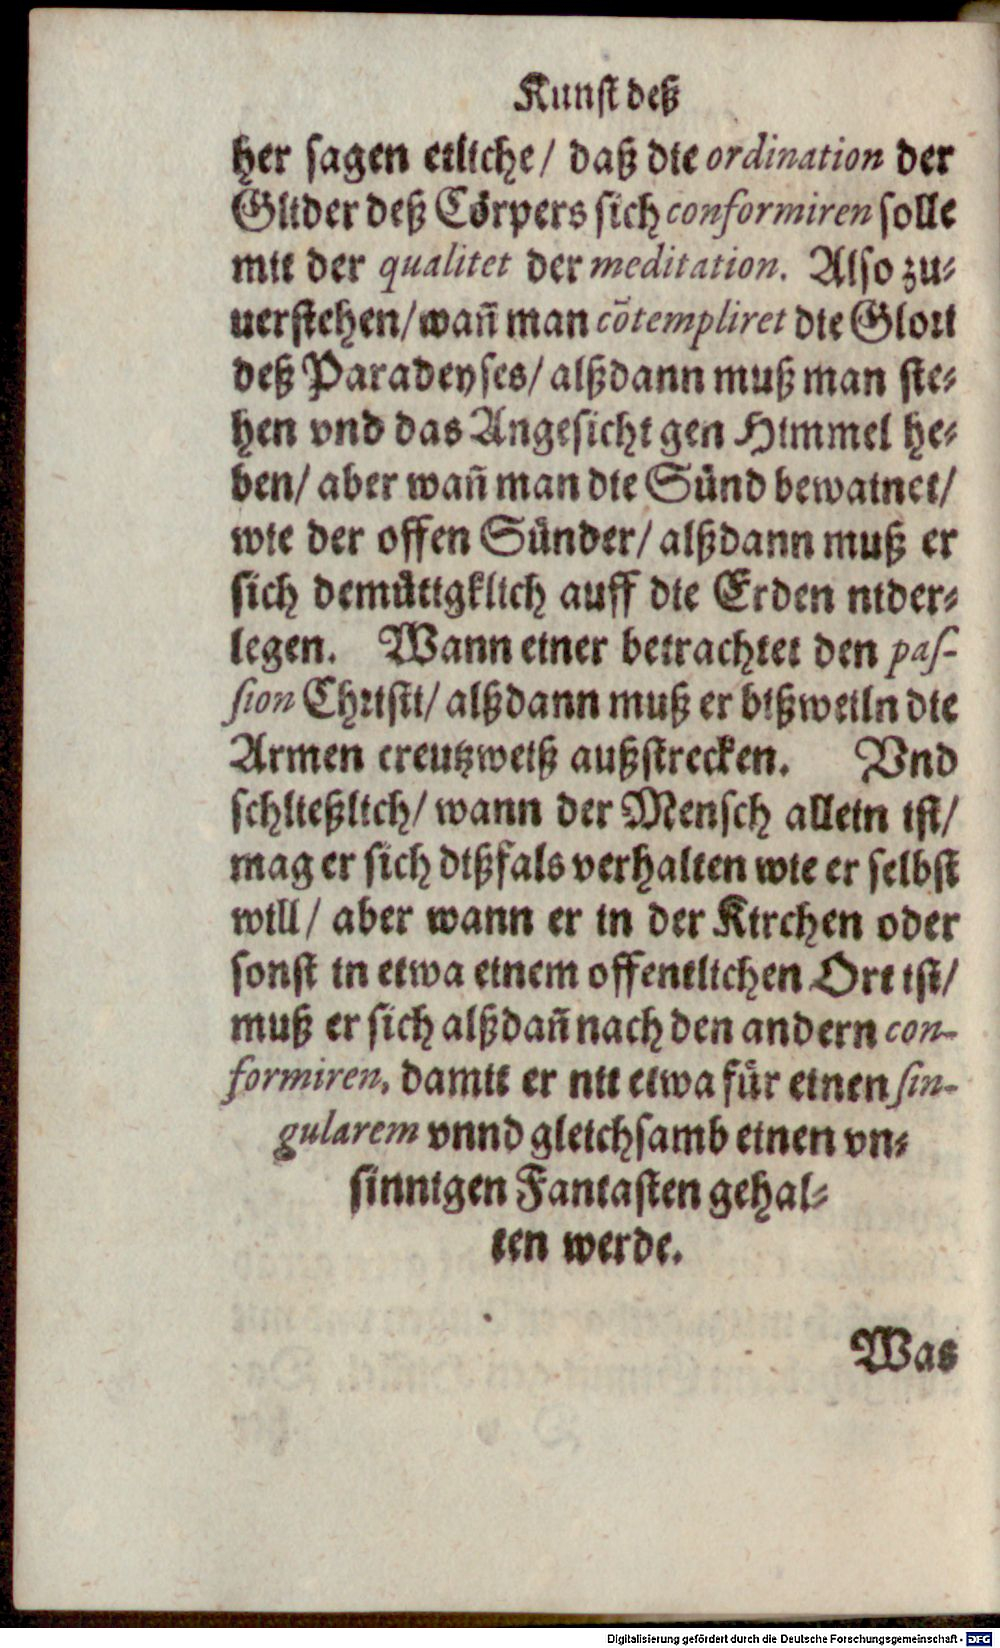 Kunſt deß
her ſagen etliche/ daß die ordination der
Glider deß Cörpers ſich conformiren ſolle
mit der qualitet der meditation. Alſo zu-
uerſtehen/ wañ man cõtempliret die Glori
deß Paradeyſes/ alßdann muß man ſte-
hen vnd das Angeſicht gen Himmel he-
ben/ aber wañ man die Sünd bewainet/
wie der offen Sünder/ alßdann muß er
ſich demüttigklich auff die Erden nider-
legen. Wann einer betrachtet den paſ-
ſion Chriſti/ alßdann muß er bißweiln die
Armen creutzweiß außſtrecken. Vnd
ſchließlich/ wann der Menſch allein iſt/
mag er ſich dißfals verhalten wie er ſelbſt
will/ aber wann er in der Kirchen oder
ſonſt in etwa einem offentlichen Ort iſt/
muß er ſich alßdañ nach den andern con-
formiren, damit er nit etwa für einen ſin-
gularem vnnd gleichſamb einen vn-
ſinnigen Fantaſten gehal-
ten werde.
Was
Digitalisierung gefördert durch die Deutsche Forschungsgemeinschaft - DFG